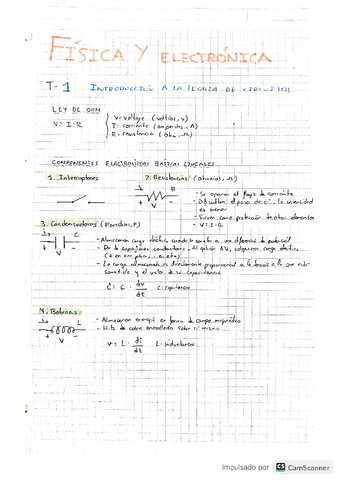 FÍSICA Y ELECTRÓNICA
T-1 INTRODUCCIÓN A LA TEORIA DE CIRCUITOS
LEY DE OHM
V = I · R
V = voltaje (voltios, V)
I = corriente (amperios, A)
R = resistencia (ohm, Ω)
COMPONENTES ELECTRÓNICOS BÁSICOS LINEALES
1. Interruptores
2. Resistencias (Ohmnios, Ω)
i R
+ V -
- Se oponen al flujo de corriente
- Dificultan el paso de e-, la intensidad
es menor
- Sirven como protección de otros elementos
- V = I · R
3. Condensadores (Faradios, F)
i C
+ V -
- Almacenan carga eléctrica cuando se somete a una diferencia de potencial
- De superficies conductoras, al aplicar ΔV, adquieren carga eléctrica
- La carga almacenada es directamente proporcional a la tensión a la que está
sometido y el valor de su capacitancia
i = C · dv/dt C: capacitancia
4. Bobinas
i L
+ V -
- Almacenan energía en forma de campo magnético
- Hilo de cobre enrollado sobre sí mismo
v = L · di/dt L: inductancia
Impulsado por CS CamScanner